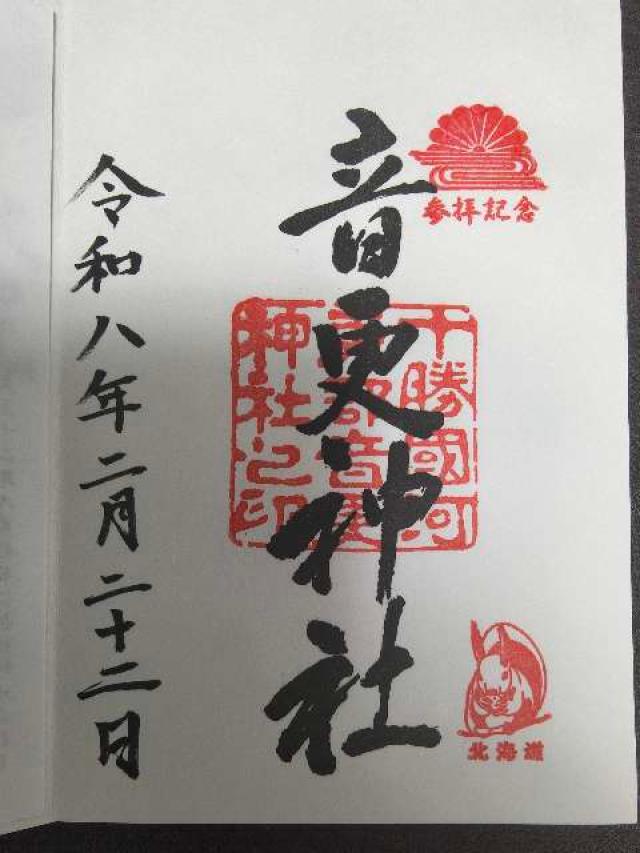 参拝記念
音更神社
十勝國河
東郡音更
神社之印
北海道
令和八年二月二十二日